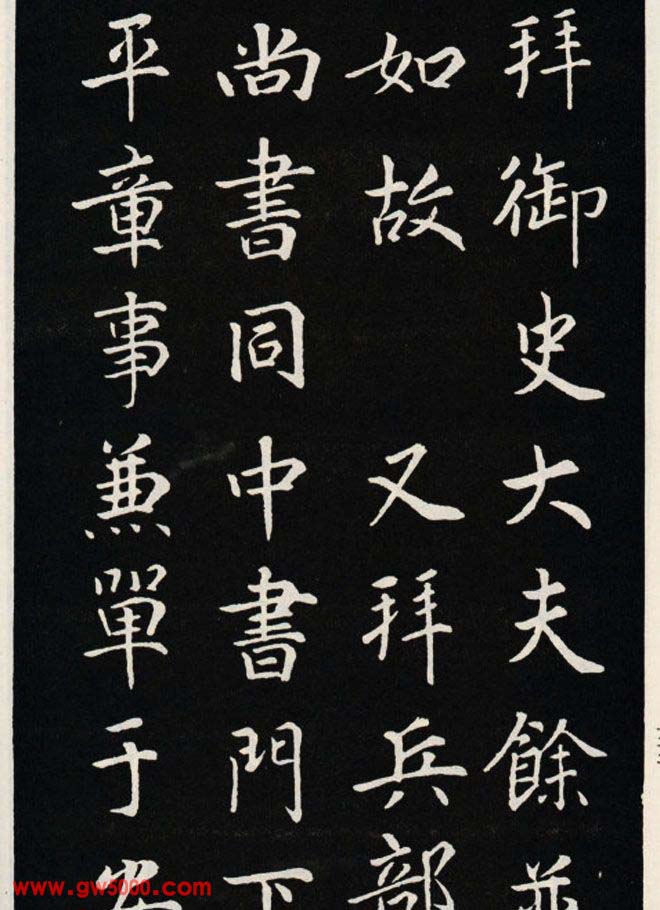 拜御史大夫餘並
如故 又拜兵部
尚書同中書門下
平章事兼單于安
www.gw5000.com